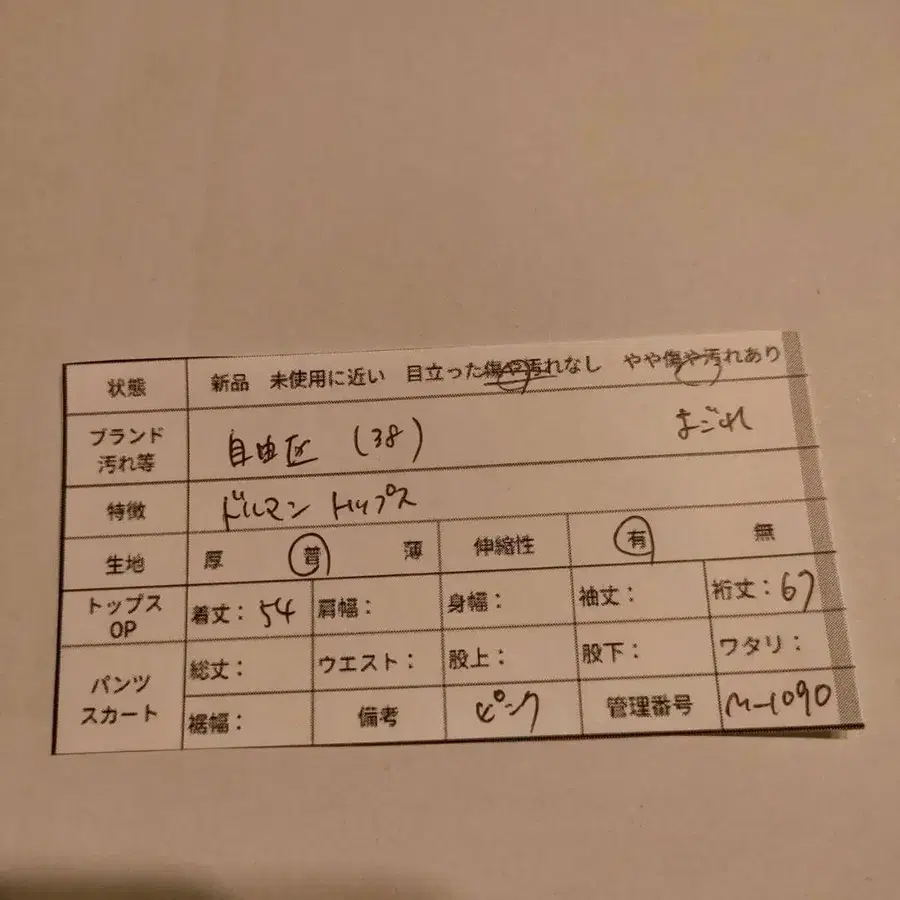 状態 新品 未使用に近い 目立った傷や汚れなし やや傷や汚れあり
ブランド 汚れ等 自由区 (38)
特徴 ドルマン トップス
生地 厚 普 薄 伸縮性 有 無
トップス OP 着丈: 54 肩幅: 身幅: 袖丈: 裄丈: 67
パンツ スカート 総丈: ウエスト: 股上: 股下: ワタリ:
裾幅: 備考 ピンク 管理番号 M-1090